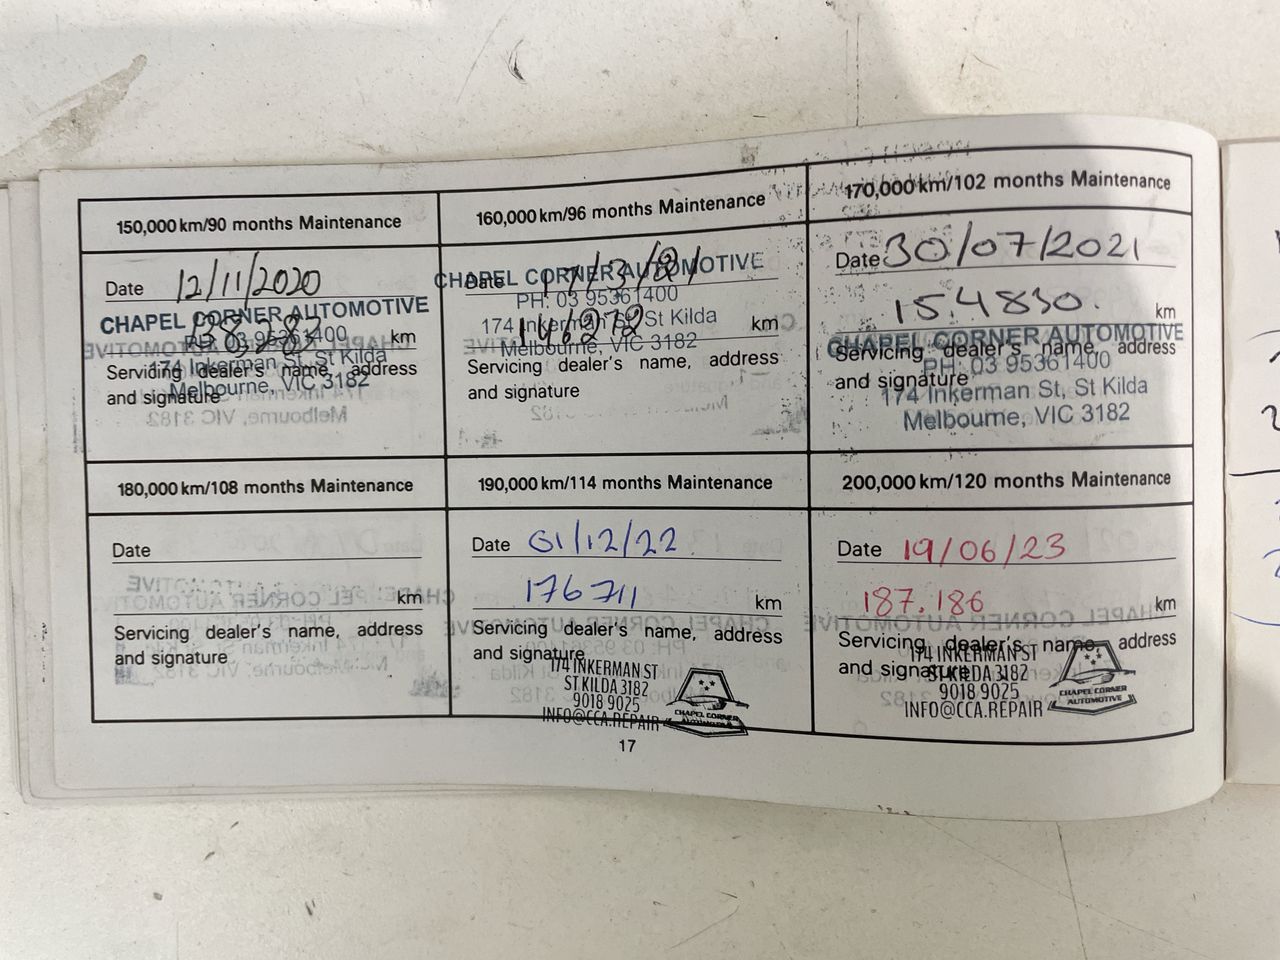 150,000 km/90 months Maintenance
Date 12/11/2020
CHAPEL CORNER AUTOMOTIVE
PH: 03 95361400
km
174 Inkerman St, St Kilda
Servicing dealer's name, address
Melbourne, VIC 3182
and signature
160,000 km/96 months Maintenance
Date
CHAPEL CORNER AUTOMOTIVE
PH: 03 95361400
174 Inkerman St, St Kilda
146272 km
Melbourne, VIC 3182
Servicing dealer's name, address
and signature
170,000 km/102 months Maintenance
Date 30/07/2021
154830. km
CHAPEL CORNER AUTOMOTIVE
Servicing dealer's name, address
PH: 03 95361400
and signature
174 Inkerman St, St Kilda
Melbourne, VIC 3182
180,000 km/108 months Maintenance
Date
km
Servicing dealer's name, address
and signature
190,000 km/114 months Maintenance
Date 01/12/22
176711 km
Servicing dealer's name, address
and signature
174 INKERMAN ST
ST KILDA 3182
9018 9025
INFO@CCA.REPAIR
CHAPEL CORNER
AUTOMOTIVE
200,000 km/120 months Maintenance
Date 19/06/23
187.186 km
Servicing dealer's name, address
and signature
174 INKERMAN ST
ST KILDA 3182
9018 9025
INFO@CCA.REPAIR
CHAPEL CORNER
AUTOMOTIVE
17